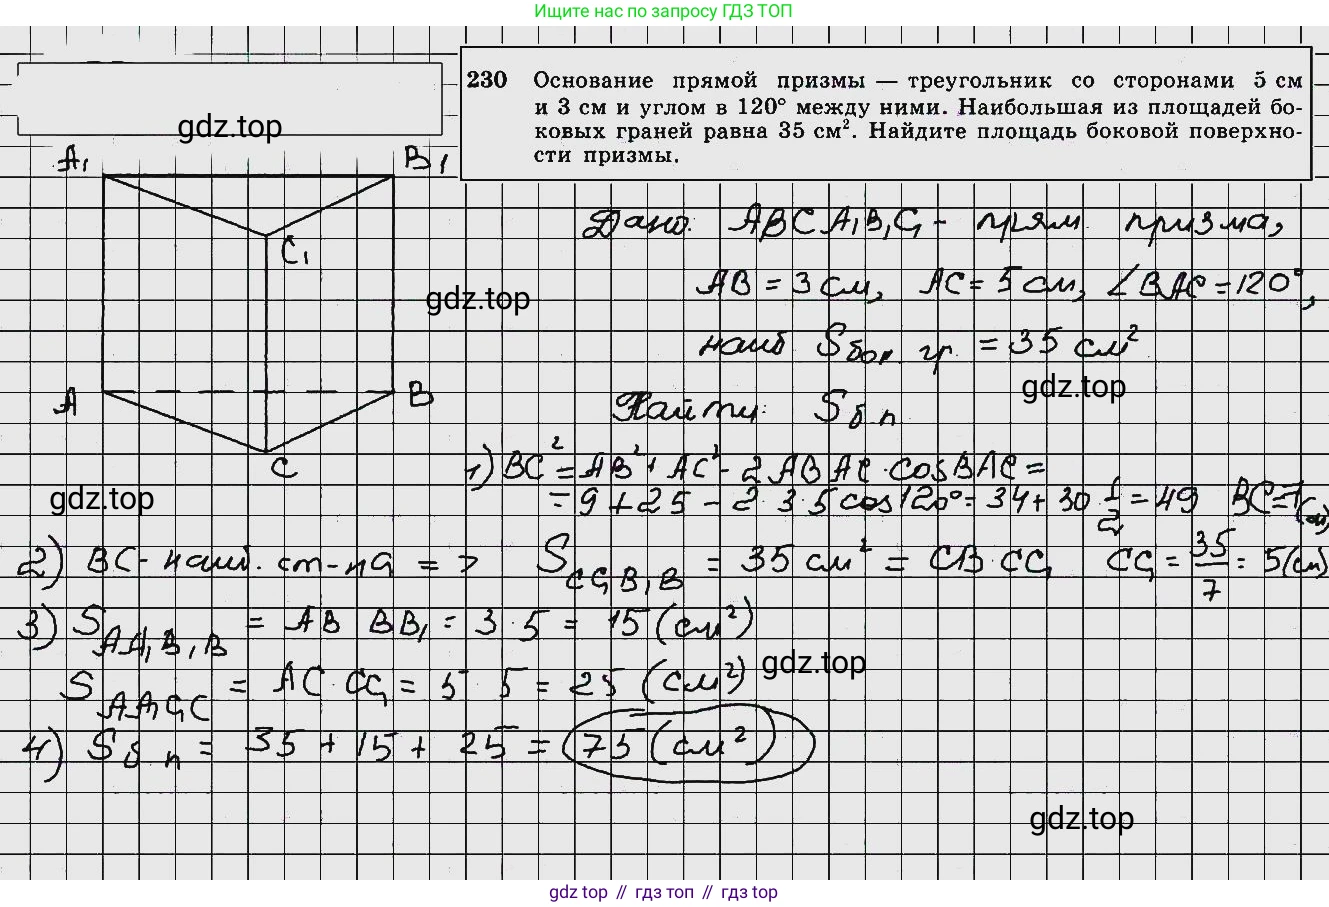 Ищите нас по запросу ГДЗ ТОП
230 Основание прямой призмы — треугольник со сторонами 5 см
и 3 см и углом в 120° между ними. Наибольшая из площадей бо-
ковых граней равна 35 см². Найдите площадь боковой поверхно-
сти призмы.
gdz.top
A₁ B₁
C₁
A B
C
Дано: ABCA₁B₁C₁ - прям. призма,
AB = 3 см, AC = 5 см, ∠BAC = 120°,
gdz.top
наиб Sбок. гр. = 35 см²
gdz.top
Найти: Sб.п
1) BC² = AB² + AC² - 2 AB AC · cos BAC =
= 9 + 25 - 2 · 3 · 5 cos 120° = 34 + 30 · 1/2 = 49 BC = 7 (см)
gdz.top
2) BC - наиб. ст-на => S CC₁B₁B = 35 см² = CB · CC₁ CC₁ = 35/7 = 5 (см)
3) S AA₁B₁B = AB · BB₁ = 3 · 5 = 15 (см²)
gdz.top
S AA₁C₁C = AC · CC₁ = 5 · 5 = 25 (см²)
4) Sб.п = 35 + 15 + 25 = 75 (см²)
gdz.top
gdz top // гдз топ // gdz top